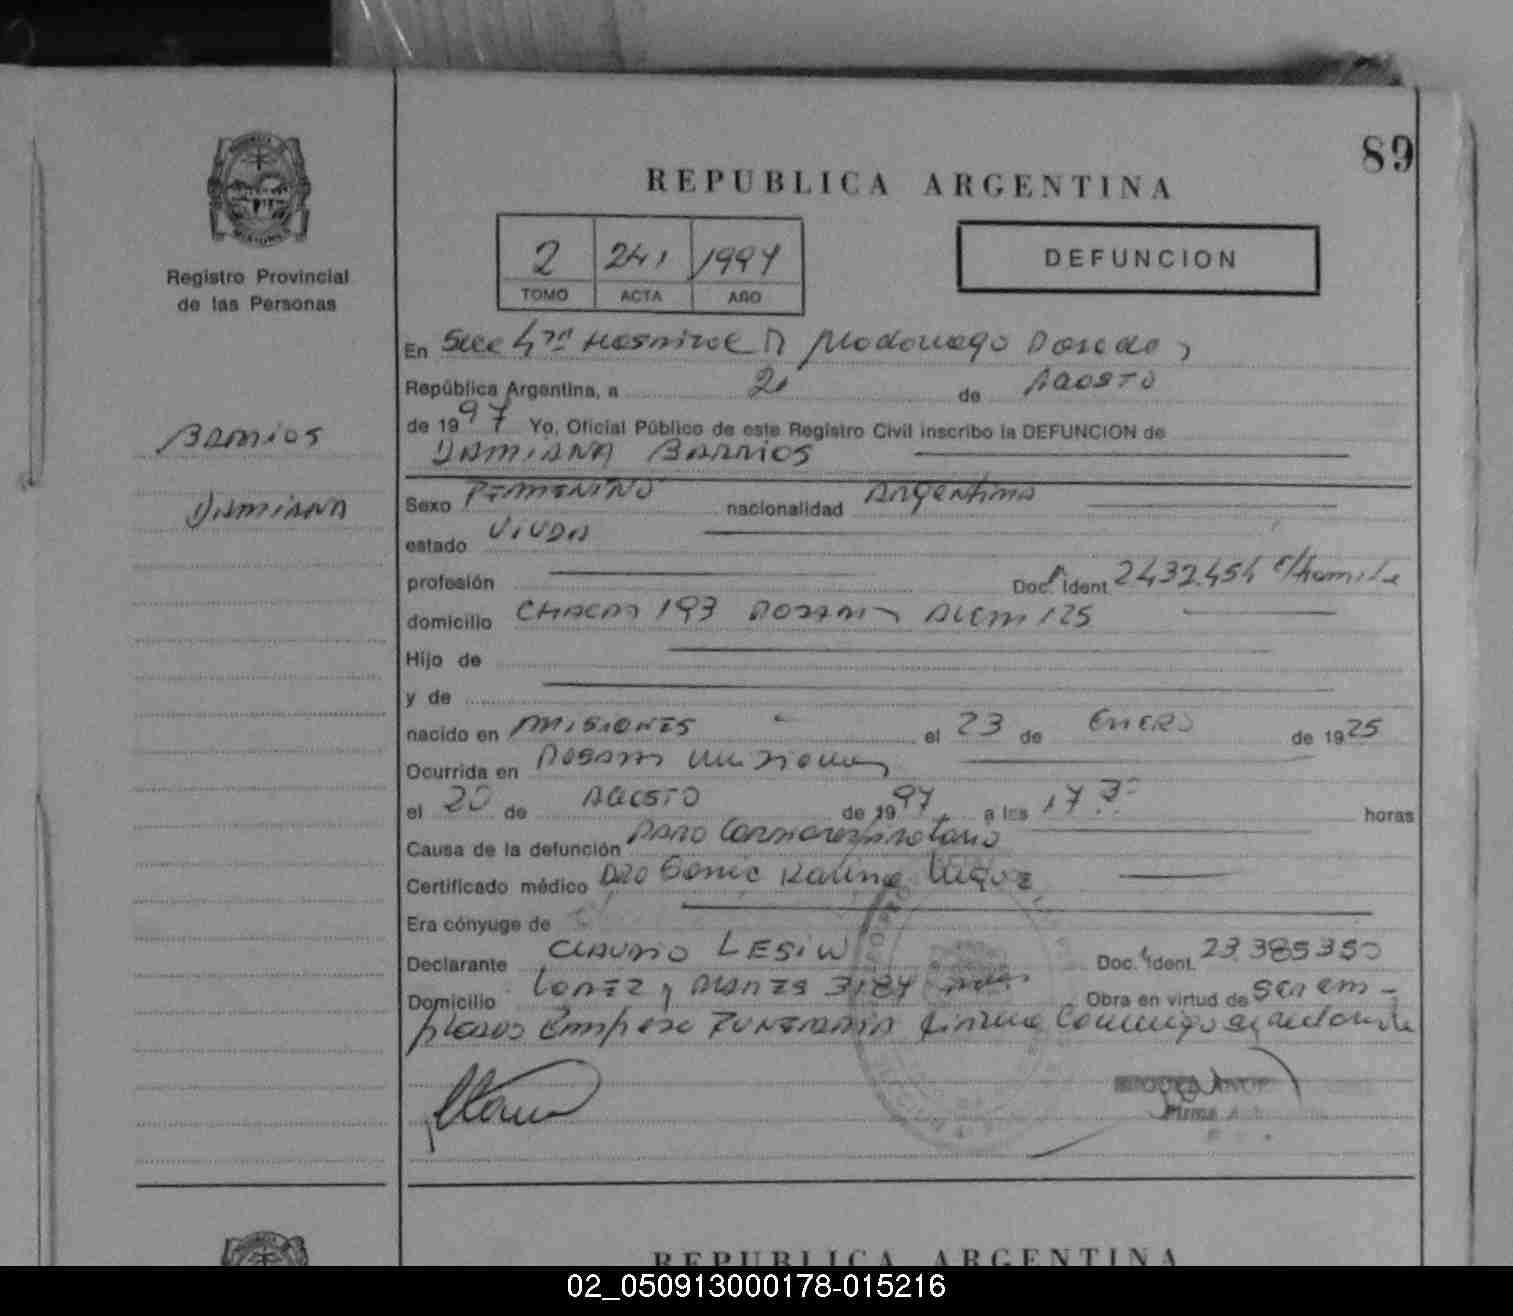 89
REPUBLICA ARGENTINA
2 241 1997
TOMO ACTA AÑO
DEFUNCION
Registro Provincial
de las Personas
En Secc 4ta Hospital R Madariaga Posadas,
República Argentina, a 21 de Agosto
de 1997 Yo, Oficial Público de este Registro Civil inscribo la DEFUNCION de
DAMIANA BARRIOS
Barrios
Damiana
Sexo FEMENINO nacionalidad Argentina
estado VIUDA
profesión Doc. Ident. 2432454
domicilio CHACRA 193 ALEM 125
Hijo de
y de
nacido en MISIONES el 23 de ENERO de 1925
Ocurrida en Posadas Misiones
el 20 de AGOSTO de 1997 a las 17 30 horas
Causa de la defunción Paro Cardiorespiratorio
Certificado médico Dro
Era cónyuge de
Declarante CLAUDIO LESIW Doc. Ident. 23.385350
Domicilio Lopez y Planes 3184 Obra en virtud de ser em-
pleado Empresa FUNERARIA firma Conmigo
Firma
REPUBLICA ARGENTINA
02_050913000178-015216